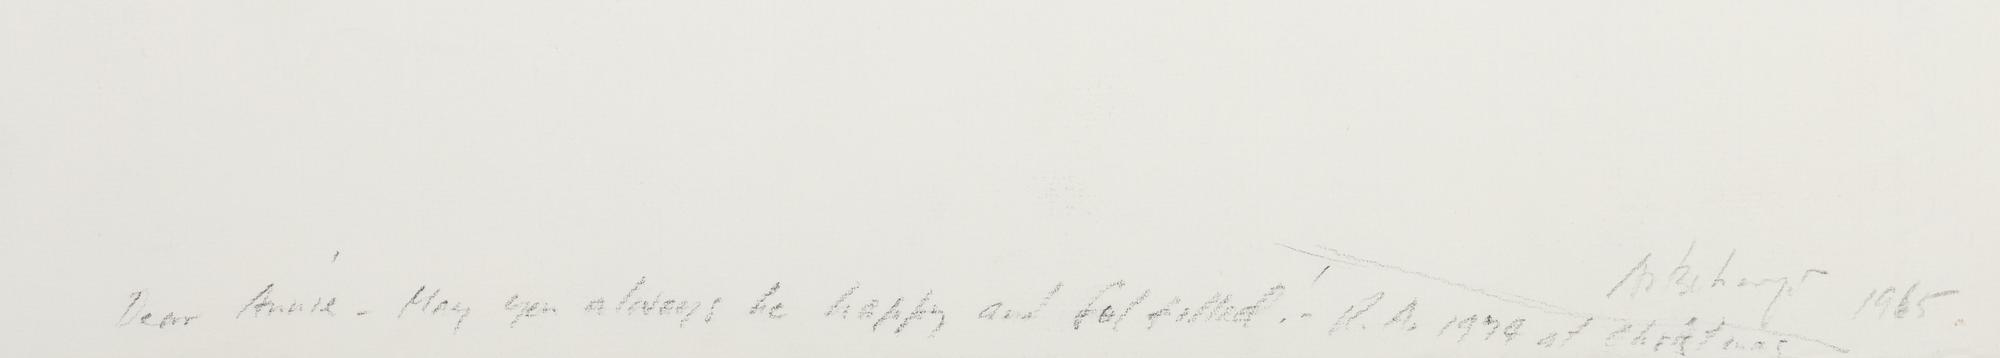 Dear Annie - May you always be happy and fulfilled! - R. A. 1974 at Christmas
Artschwager 1965